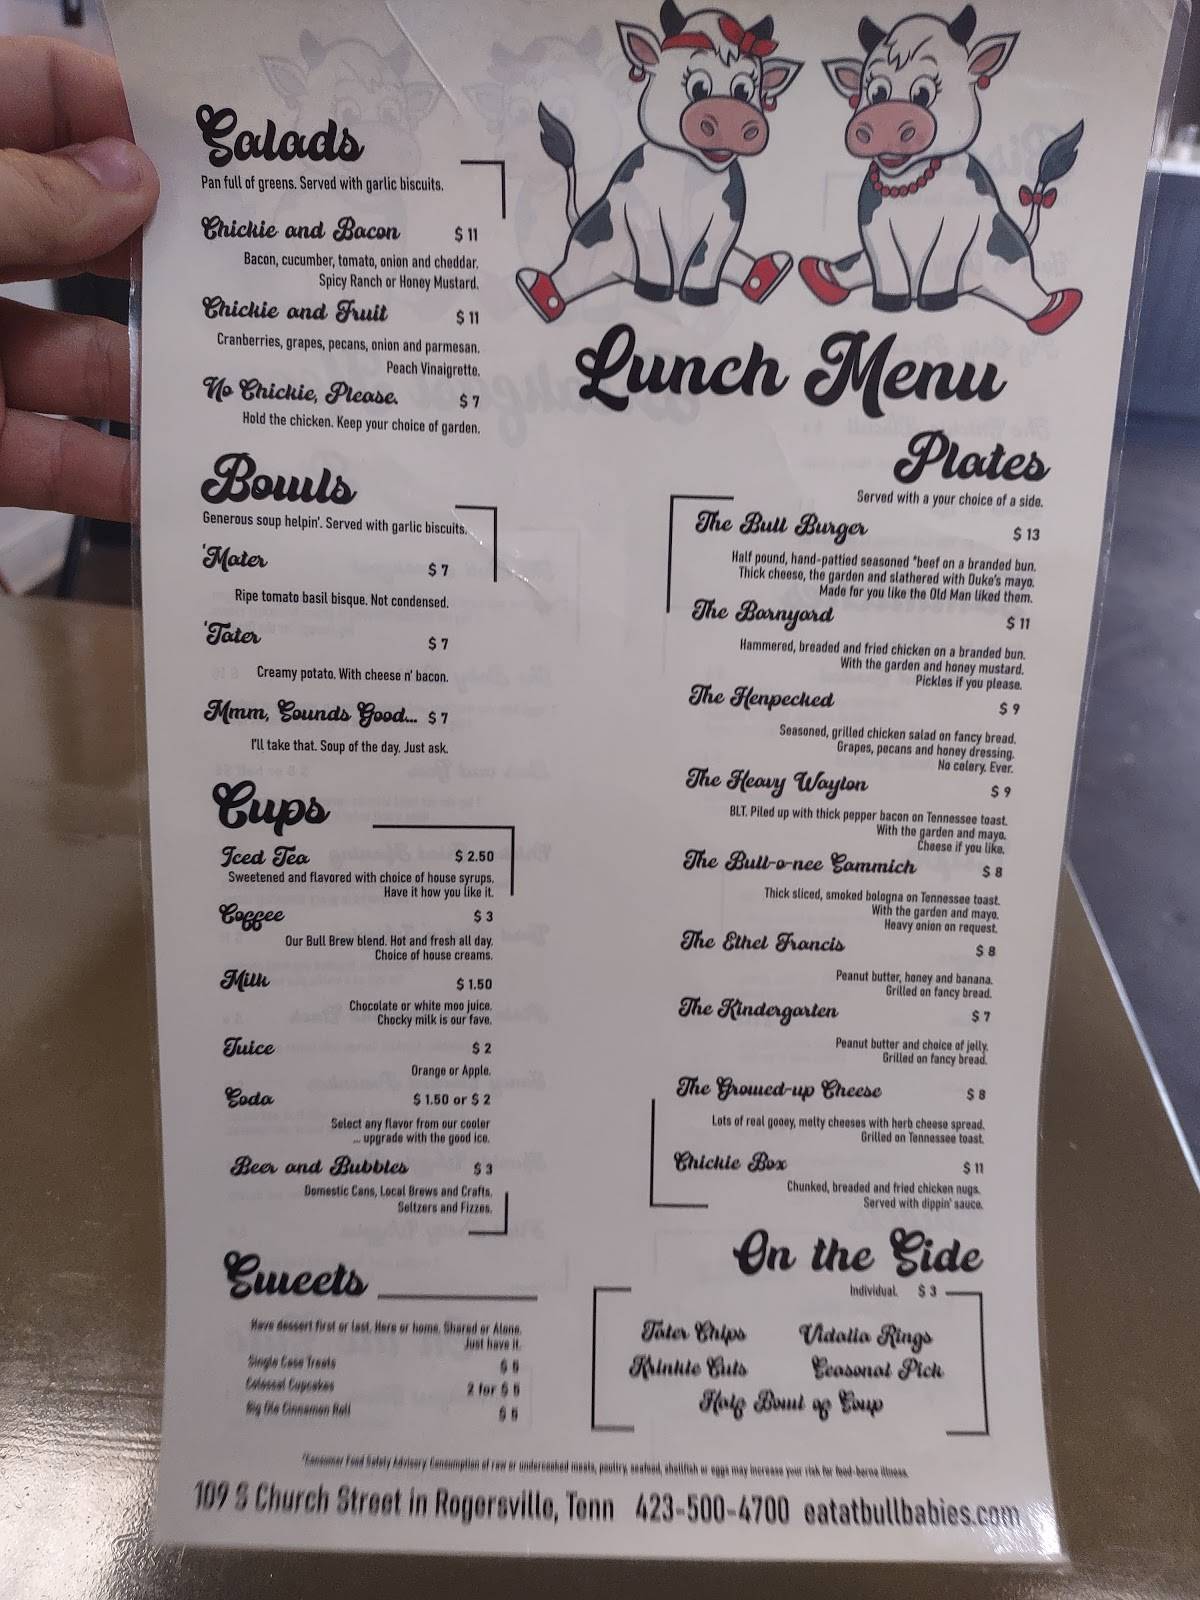 Salads
Pan full of greens. Served with garlic biscuits.
Chickie and Bacon $ 11
Bacon, cucumber, tomato, onion and cheddar.
Spicy Ranch or Honey Mustard.
Chickie and Fruit $ 11
Cranberries, grapes, pecans, onion and parmesan.
Peach Vinaigrette.
No Chickie, Please. $ 7
Hold the chicken. Keep your choice of garden.
Bowls
Generous soup helpin'. Served with garlic biscuits.
'Mater $ 7
Ripe tomato basil bisque. Not condensed.
'Tater $ 7
Creamy potato. With cheese n' bacon.
Mmm, Sounds Good... $ 7
I'll take that. Soup of the day. Just ask.
Cups
Iced Tea $ 2.50
Sweetened and flavored with choice of house syrups.
Have it how you like it.
Coffee $ 3
Our Bull Brew blend. Hot and fresh all day.
Choice of house creams.
Milk $ 1.50
Chocolate or white moo juice.
Chocky milk is our fave.
Juice $ 2
Orange or Apple.
Soda $ 1.50 or $ 2
Select any flavor from our cooler
... upgrade with the good ice.
Beer and Bubbles $ 3
Domestic Cans, Local Brews and Crafts.
Seltzers and Fizzes.
Sweets
Have dessert first or last. Here or home. Shared or Alone.
Just have it.
Single Case Treats $ 6
Colossal Cupcakes 2 for $ 6
Big Ole Cinnamon Roll $ 6
Lunch Menu
Plates
Served with a your choice of a side.
The Bull Burger $ 13
Half pound, hand-pattied seasoned *beef on a branded bun.
Thick cheese, the garden and slathered with Duke's mayo.
Made for you like the Old Man liked them.
The Barnyard $ 11
Hammered, breaded and fried chicken on a branded bun.
With the garden and honey mustard.
Pickles if you please.
The Henpecked $ 9
Seasoned, grilled chicken salad on fancy bread.
Grapes, pecans and honey dressing.
No celery. Ever.
The Heavy Waylon $ 9
BLT. Piled up with thick pepper bacon on Tennessee toast.
With the garden and mayo.
Cheese if you like.
The Bull-o-nee Sammich $ 8
Thick sliced, smoked bologna on Tennessee toast.
With the garden and mayo.
Heavy onion on request.
The Ethel Francis $ 8
Peanut butter, honey and banana.
Grilled on fancy bread.
The Kindergarten $ 7
Peanut butter and choice of jelly.
Grilled on fancy bread.
The Growed-up Cheese $ 8
Lots of real gooey, melty cheeses with herb cheese spread.
Grilled on Tennessee toast.
Chickie Box $ 11
Chunked, breaded and fried chicken nugs.
Served with dippin' sauce.
On the Side
Individual. $ 3
Tater Chips Vidalia Rings
Krinkle Cuts Seasonal Pick
Half Bowl of Soup
*Consumer Food Safety Advisory Consumption of raw or undercooked meats, poultry, seafood, shellfish or eggs may increase your risk for food-borne illness.
109 S Church Street in Rogersville, Tenn 423-500-4700 eatatbullbabies.com